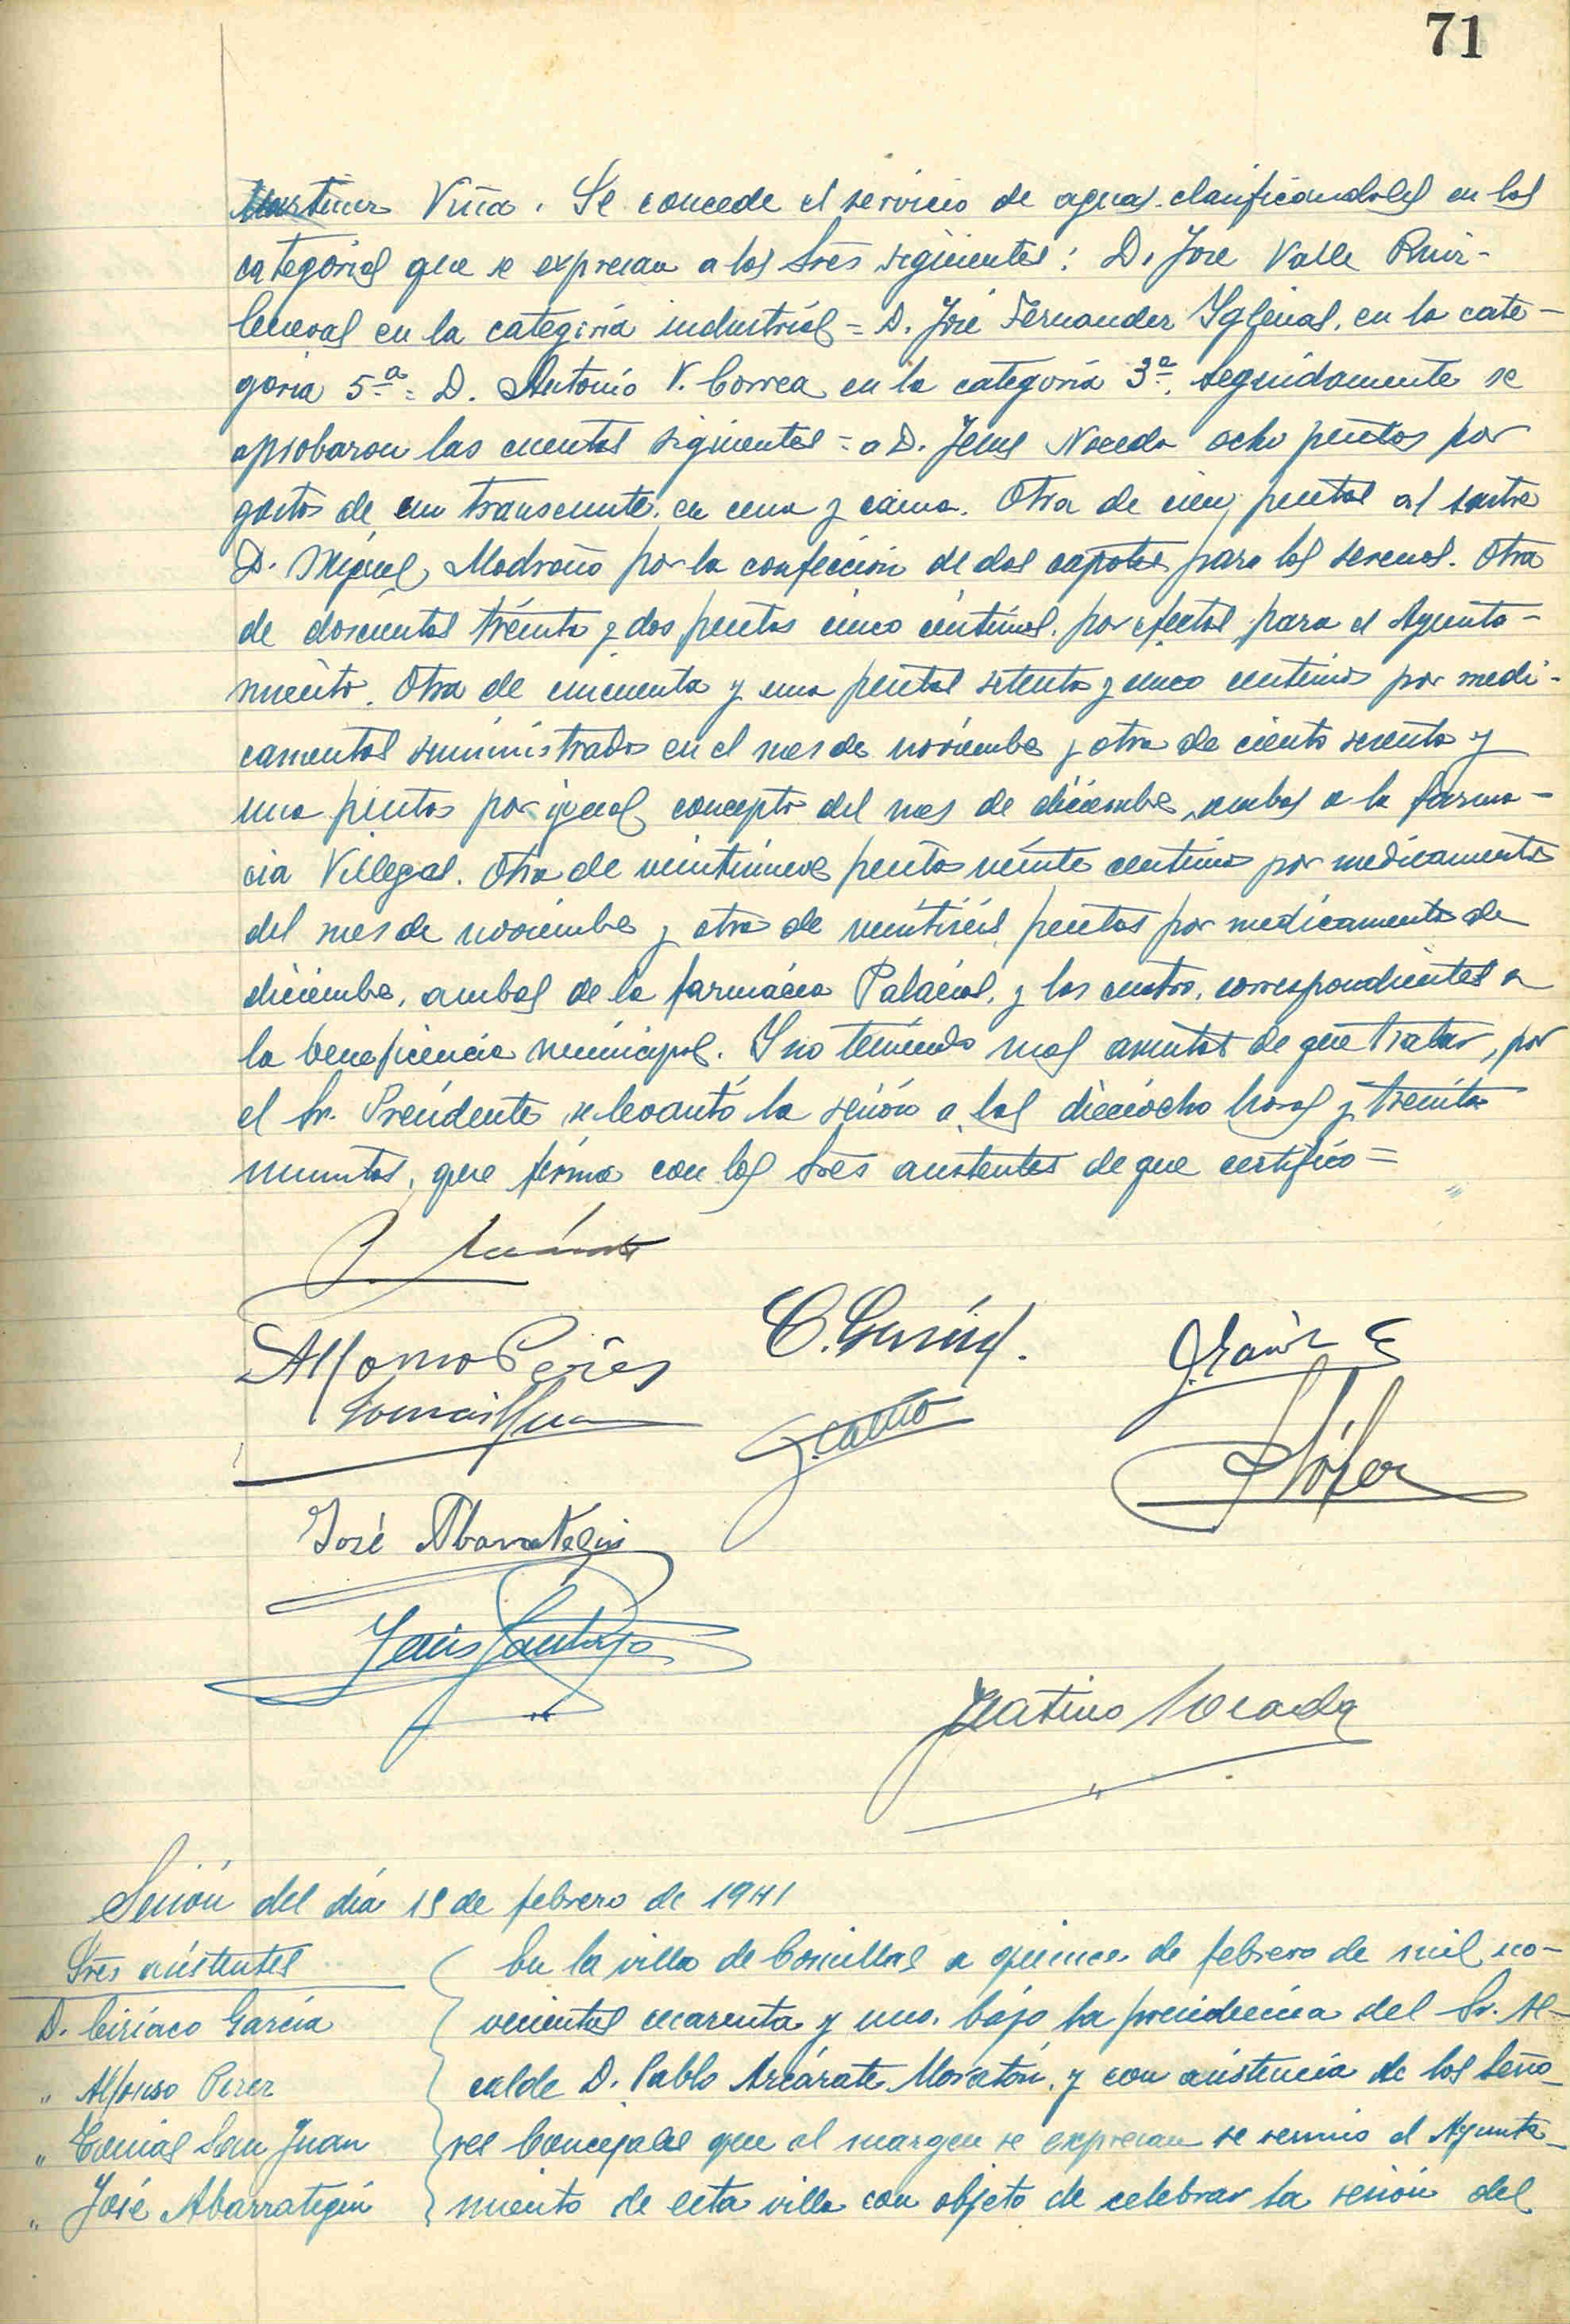 71
Martinez Viña. Se concede el servicio de aguas clasificandoles en las
categorias que se expresan a los Sres siguientes: D. Jose Valle Ruiz-
Cueval en la categoria industrial = D. José Fernandez Yglesias, en la cate-
goria 5ª = D. Antonio V. Correa en la categoria 3ª. Seguidamente se
aprobaron las cuentas siguientes = a D. Jesus Noceda ocho pesetas por
gastos de un transeunte en cena y cama. Otra de cien pesetas al sastre
D. Miguel Madroño por la confección de dos capotes para los serenos. Otra
de doscientas treinta y dos pesetas cinco centimos por efectos para el Ayunta-
miento. Otra de cincuenta y una pesetas setenta y cinco centimos por medi-
camentos suministrados en el mes de noviembre y otra de ciento sesenta y
una pesetas por igual concepto del mes de diciembre, ambas a la farma-
cia Villegas. Otra de veintinueve pesetas veinte centimos por medicamentos
del mes de noviembre y otra de veintiseis pesetas por medicamentos de
diciembre, ambas de la farmácia Palácios, y las cuatro, correspondientes a
la beneficencia municipal. Y no teniendo mas asuntos de que tratar, por
el Sr. Presidente se levantó la sesión a las dieciocho horas y treinta
minutos, que firma con los Sres asistentes de que certifico =
Alfonso Perez
C. García
José Abarrategui
Jesús Santiago
Sesión del día 15 de febrero de 1941
Sres asistentes
D. Ciriaco García
" Alfonso Perez
" Tomas San Juan
" José Abarrategui
En la villa de Comillas a quince de febrero de mil no-
vecientos cuarenta y uno, bajo la presidencia del Sr. Al-
calde D. Pablo Azcárate Moratón, y con asistencia de los seño-
res Concejales que al margen se expresan se reunio el Ayunta-
miento de esta villa con objeto de celebrar la sesion del